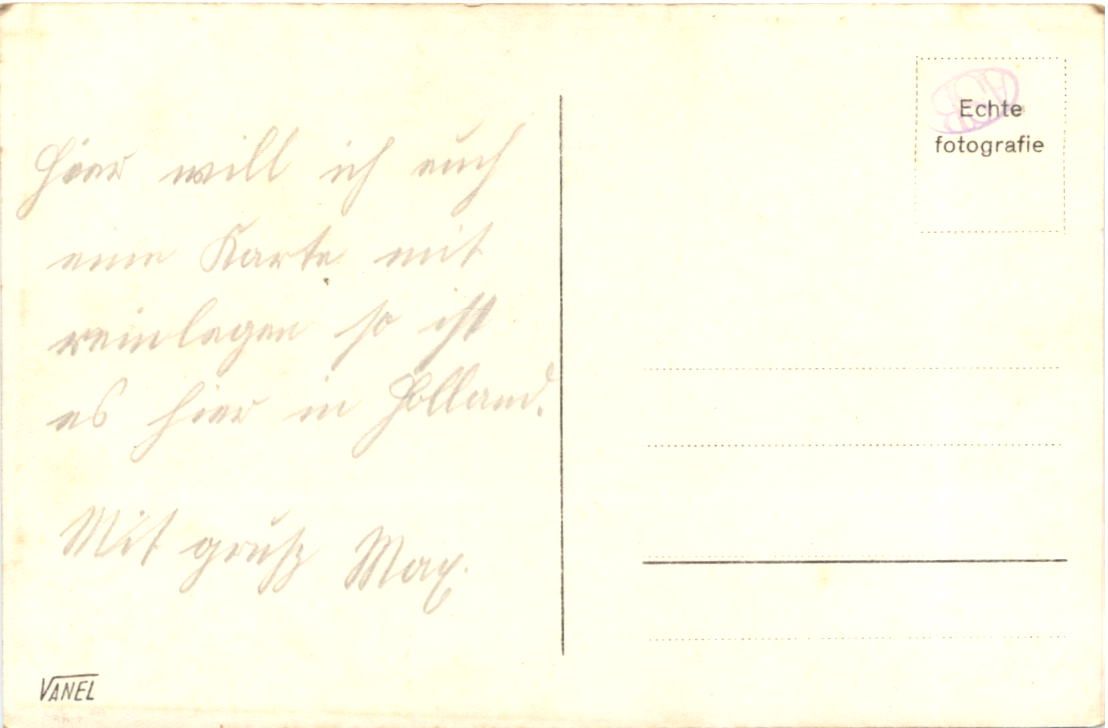 Hier will ich euch
eine Karte mit
reinlegen so ist
es hier in Holland.
Mit gruß Max.
Echte
fotografie
VANEL